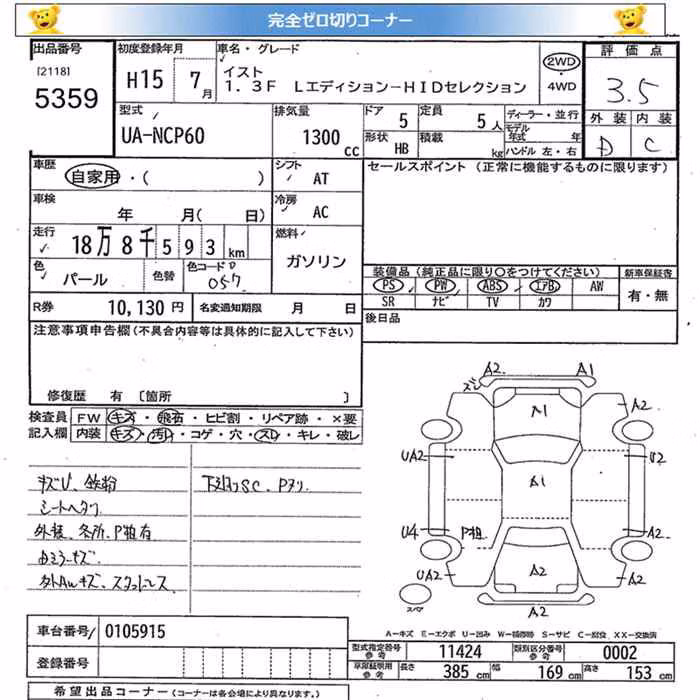 完全ゼロ切りコーナー
出品番号 初度登録年月 車名・グレード 評価点
[2118] イスト 2WD
5359 H15 7月 1.3F Lエディション-HIDセレクション 4WD 3.5
型式 排気量 ドア 5 定員 5人 ディーラー・並行 外装 内装
UA-NCP60 1300cc 形状 HB 積載 kg モデル年式 年 D C
ハンドル 左・右
車歴 自家用・( ) シフト AT セールスポイント (正常に機能するものに限ります)
車検 年 月( 日) 冷房 AC
走行 18万8千593km 燃料 ガソリン
色 パール 色替 色コード 057 装備品(純正品に限り〇をつけてください) 新車保証書
PS PW ABS エアB AW 有・無
R券 10,130円 名変通知期限 月 日 SR ナビ TV カワ
注意事項申告欄(不具合内容等は具体的に記入して下さい) 後日品
修復歴 有 [箇所 ]
検査員 FW キズ・飛石・ヒビ割・リペア跡・×要
記入欄 内装 キズ・汚れ・コゲ・穴・スレ・キレ・破レ
A2 A1
A2 A1 A2
UA2 A1
U4 A2
UA2 A2 A2
A2
キズU、鉄粉
外装、各所、P担有
車台番号 0105915
A-キズ E-エクボ U-凹み W-補修跡 S-サビ C-腐食、XX-交換済
型式指定番号 参考 11424 類別区分番号 参考 0002
登録番号
車庫証明用 参考 長さ 385cm 幅 169cm 高さ 153cm
希望出品コーナー (コーナーは各会場により異なります。)